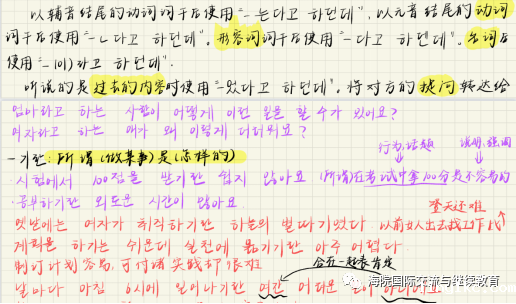 以辅音结尾的动词词干后使用"-는다고 하던데", 以元音结尾的动词
词干后使用"-ㄴ다고 하던데"。形容词词干后使用"-다고 하던데"。名词后
使用"-(이)라고 하던데".
听说的是过去的内容时使用"-었다고 하던데". 将对方的提问转达给
엄마라고 하는 사람이 어떻게 이런 일을 할 수가 있어요?
여자라고 하는 애가 왜 이렇게 더러워요?
行为,话题 说明,强调
-기란: 所谓(做某事)是(怎样的)
시험에서 100점을 받기란 쉽지 않아요 (所谓)在考试中拿100分是不容易的
공부하기란 외로운 시간이 많아요.
登天还难
옛날에는 여자가 취직하기란 하늘의 별따기였다. 以前女人出去找工作比
계획을 하기는 쉬운데 실천에 옮기기란 아주 어렵다
制订计划容易,可付诸实践却很难
合在一起表肯定
날마다 아침 6시에 일어나기란 여간 어려운 일이 아니다
海院国际交流与继续教育